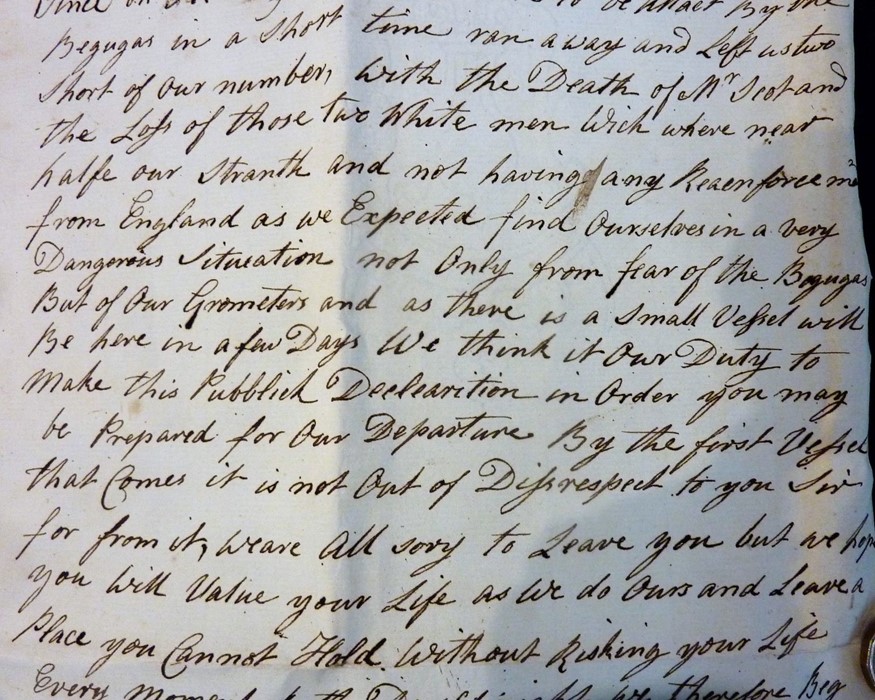 Begugas in a Short time ran away and Left us two
Short of our number, With the Death of Mr Scot and
the Loss of those two White men Wich where near
halfe our Stranth and not having any Reaenforceme
from England as we Expected find Ourselves in a very
Dangerous Situeation not Only from fear of the Begugas
But of Our Grometers and as there is a Small Vessel will
Be here in a few Days We think it Our Duty to
Make this Pubblick Declearition in Order you may
be Prepared for Our Departure By the first Vessel
that Comes it is not Out of Dissrespect to you Sir
for from it, weare All sory to Leave you but we hope
you Will Value your Life as We do Ours and Leave a
Place you Cannot Hold Without Risking your Life
Every therefore Beg